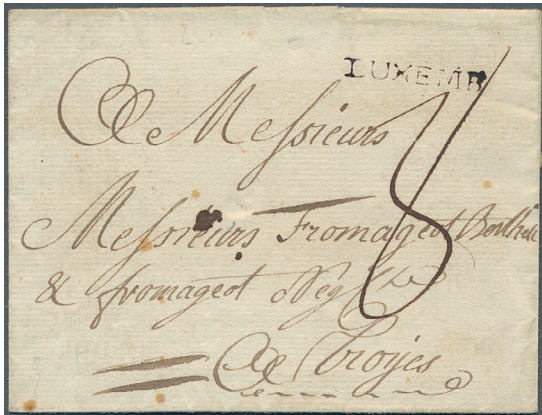 LUXEMB
A Messieurs
Messieurs Fromageot
& fromageot Nég
A Troÿes